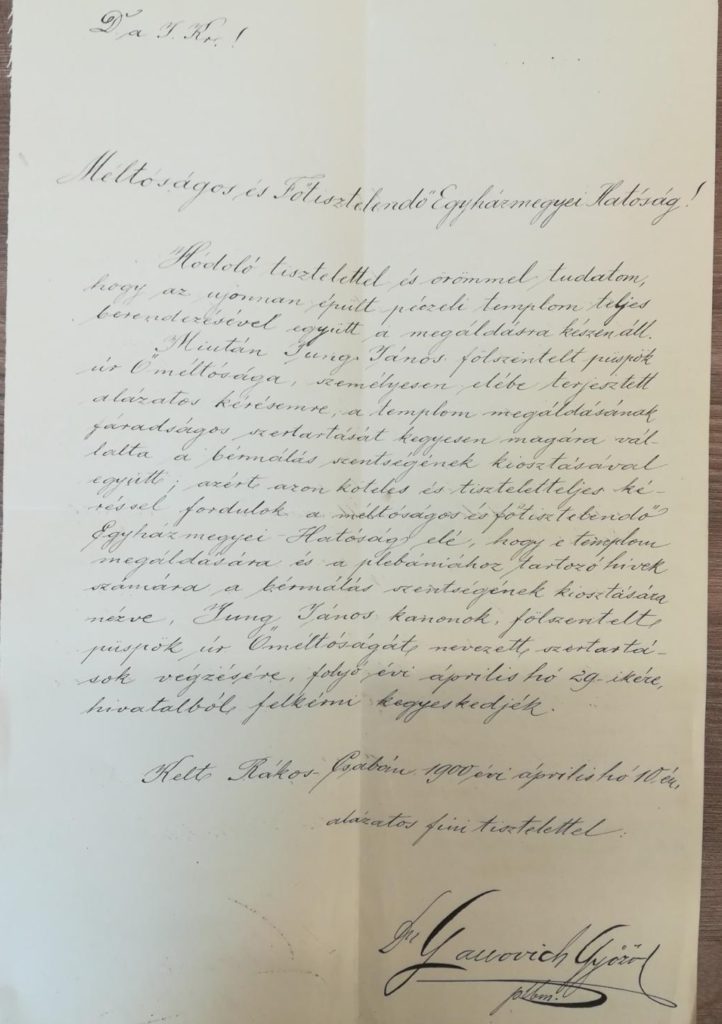 D. a J. Kr.!
Méltóságos és Főtisztelendő Egyházmegyei Hatóság!
Hódoló tisztelettel és örömmel tudatom,
hogy az ujonnan épült péczeli templom teljes
berendezésével együtt a megáldásra készen áll.
Miután Jung János fölszentelt püspök
úr Őméltósága, személyesen elébe terjesztett
alázatos kérésemre, a templom megáldásának
fáradságos szertartását kegyesen magára vál-
lalta a bérmálás szentségének kiosztásával
együtt; azért azon köteles és tiszteletteljes ké-
réssel fordulok a méltóságos és főtisztelendő
Egyházmegyei-Hatóság elé, hogy e templom
megáldására és a plebániához tartozó hivek
számára a bérmálás szentségének kiosztására
nézve, Jung János kanonok, fölszentelt
püspök úr Őméltóságát, nevezett szertartá-
sok végzésére, folyó évi április hó 29-ikére,
hivatalból, felkérni kegyeskedjék.
Kelt Rákos-Csabán 1900 évi április hó 10.én,
alázatos fiui tisztelettel:
Győző
plbm.